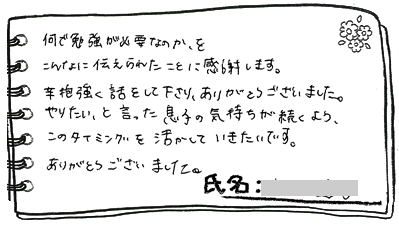 何で勉強が必要なのか、を
こんなに伝えられたことに感謝します。
辛抱強く話をして下さり、ありがとうございました。
やりたい、と言った息子の気持ちが続くよう、
このタイミングを活かしていきたいです。
ありがとうございました。
氏名: